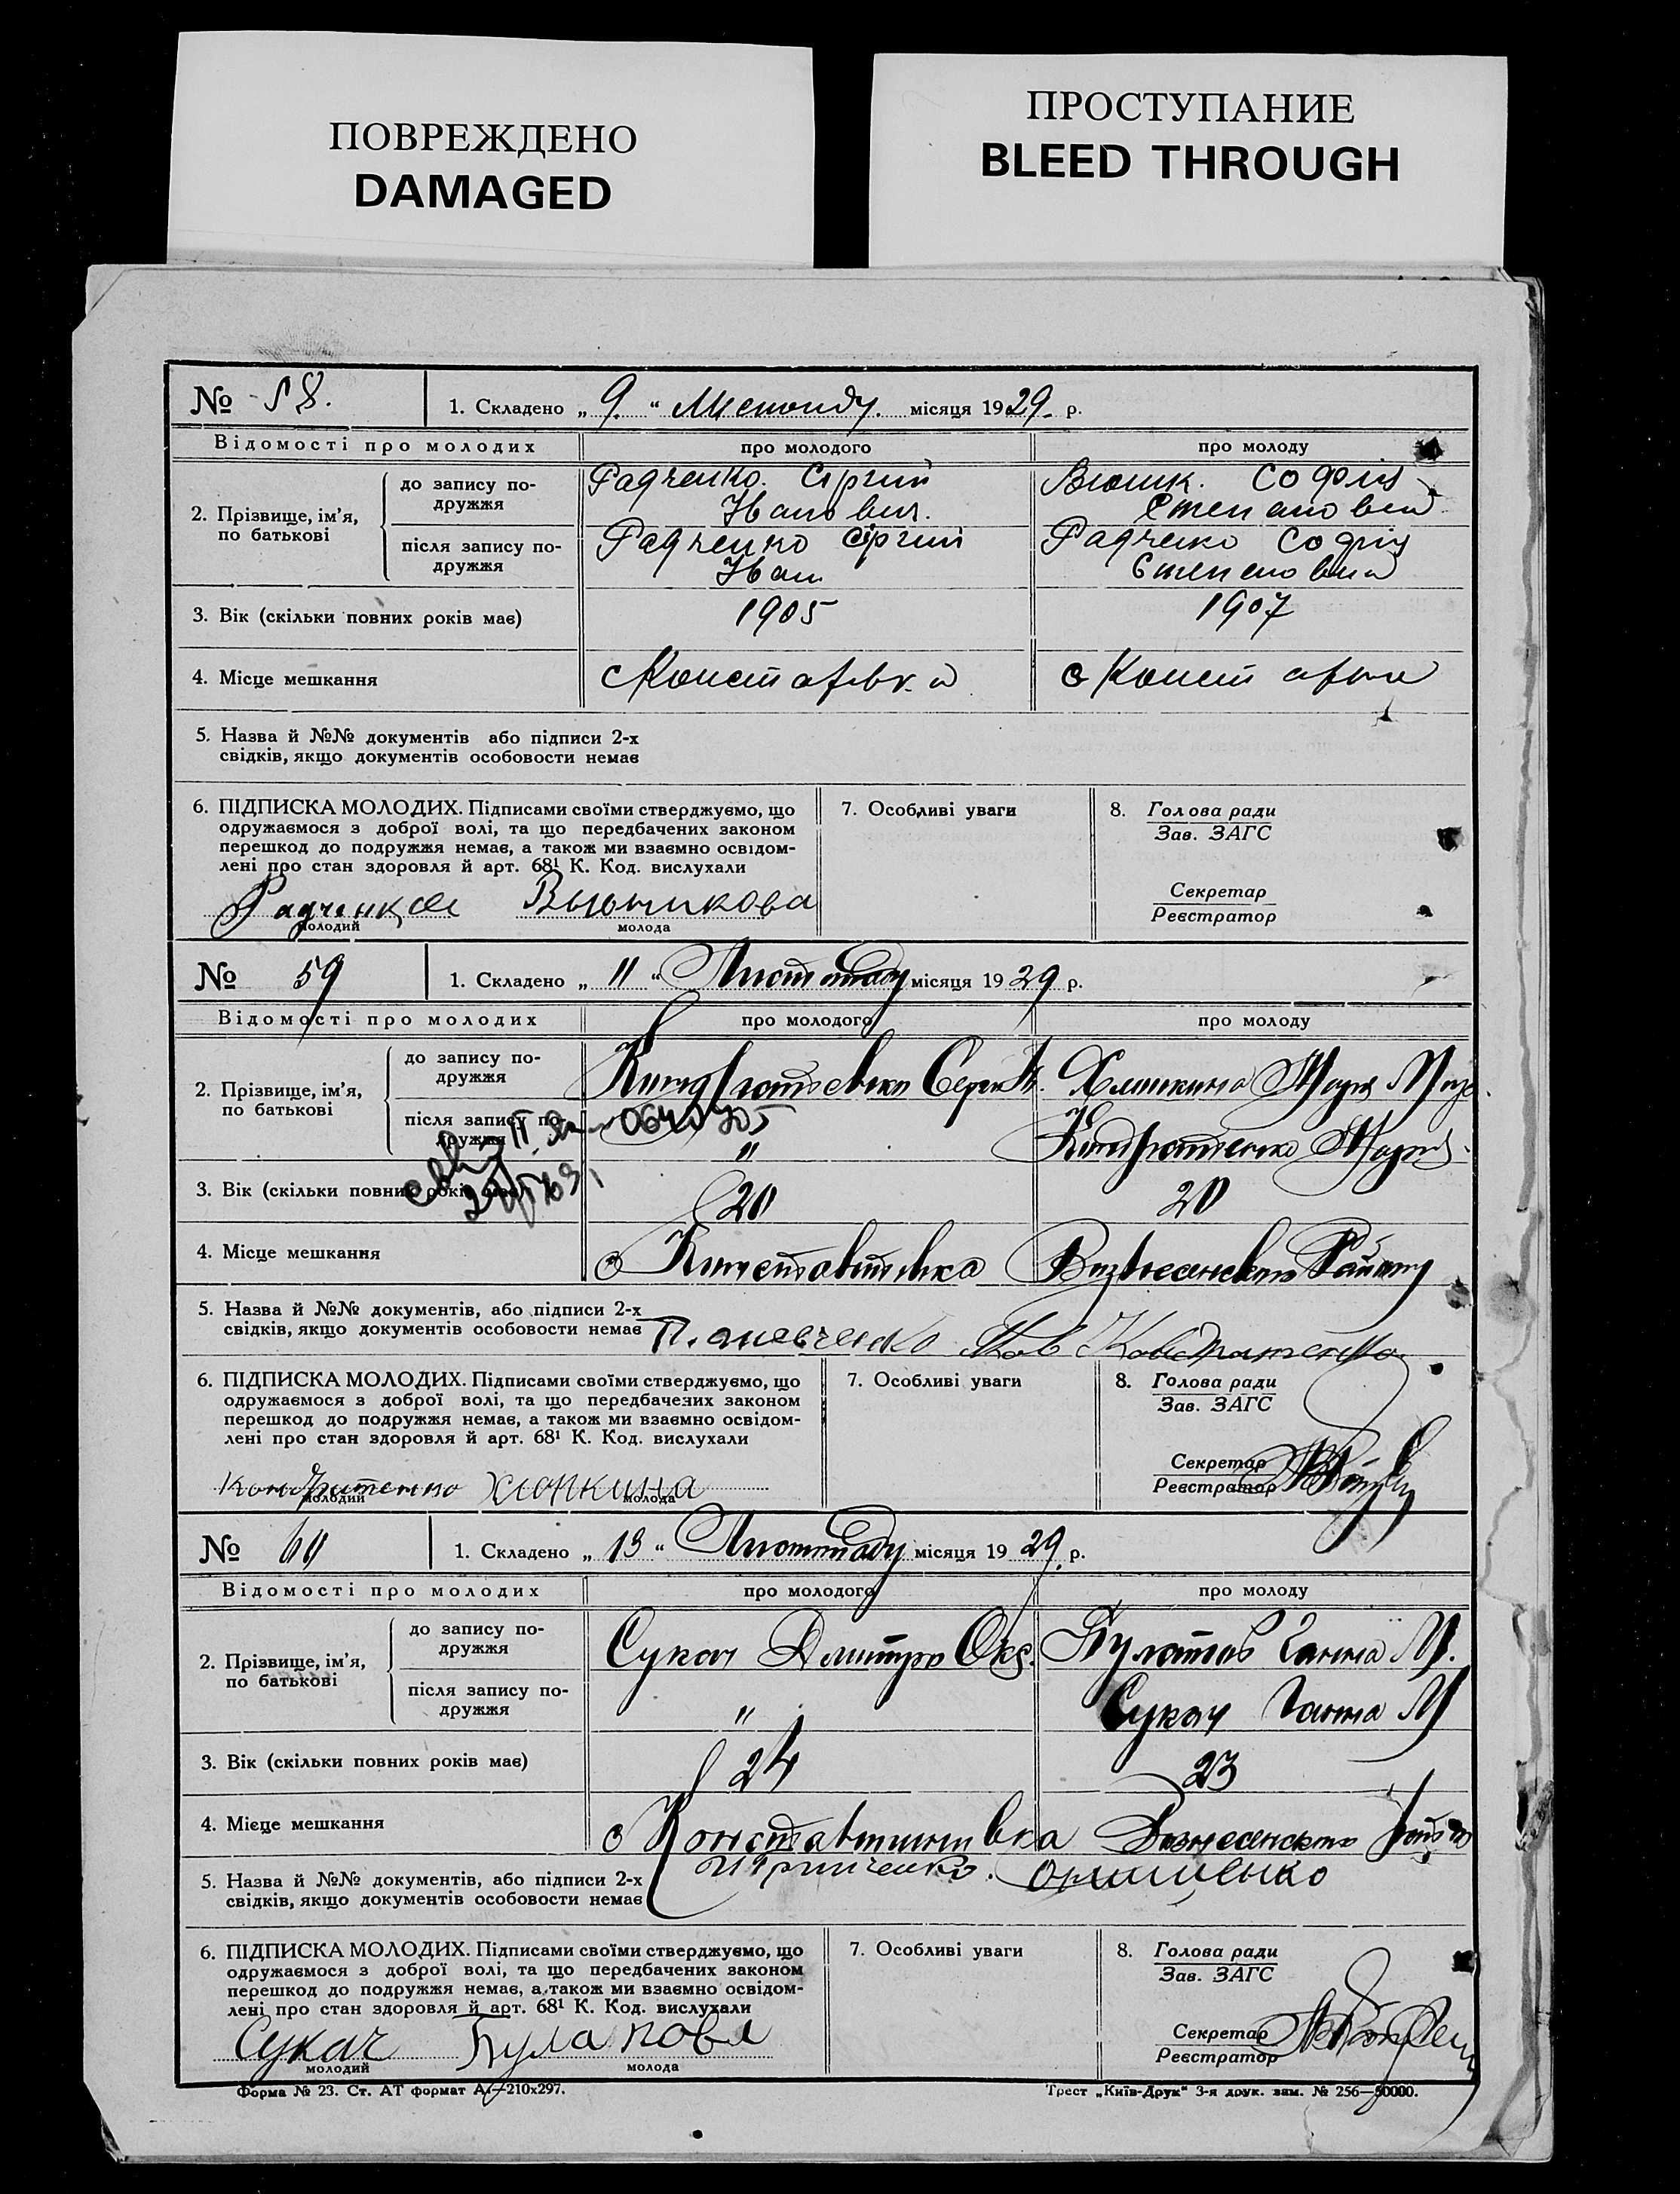 ПОВРЕЖДЕНО
DAMAGED
ПРОСТУПАНИЕ
BLEED THROUGH
№ 58. 1. Складено „ 9. “ місяця 1929. р.
Відомості про молодих про молодого про молоду
2. Прізвище, ім’я, по батькові
до запису по-
дружжя
Радченко. Сіргий
Іванович.
Софія
Степановна
після запису по-
дружжя
Радченко Сіргий
Іван
Радченко Софія
Степановна
3. Вік (скільки повних років має) 1905 1907
4. Місце мешкання
5. Назва й №№ документів або підписи 2-х
свідків, якщо документів особовости немає
6. ПІДПИСКА МОЛОДИХ. Підписами своїми стверджуємо, що
одружаємося з доброї волі, та що передбачених законом
перешкод до подружжя немає, а також ми взаємно освідом-
лені про стан здоровля й арт. 68¹ К. Код. вислухали
7. Особливі уваги
8. Голова ради
Зав. ЗАГС
Секретар
Реєстратор
Вьюникова
молодий молода
№ 59 1. Складено „ 11 “ Листопаду місяця 1929 р.
Відомості про молодих про молодого про молоду
2. Прізвище, ім’я,
по батькові
до запису по-
дружжя
Кондратенко Сергій Марія
після запису по-
дружжя
" Кондратенко Марія
3. Вік (скільки повних років має) 20 20
4. Місце мешкання с Константинівка Вознесенського Району
5. Назва й №№ документів, або підписи 2-х
свідків, якщо документів особовости немає
Кондратенко
6. ПІДПИСКА МОЛОДИХ. Підписами своїми стверджуємо, що
одружаємося з доброї волі, та що передбачених законом
перешкод до подружжя немає, а також ми взаємно освідом-
лені про стан здоровля й арт. 68¹ К. Код. вислухали
7. Особливі уваги
8. Голова ради
Зав. ЗАГС
Секретар
Реєстратор
Кондратенко
молодий молода
№ 60 1. Складено „ 13 “ Листопаду місяця 1929. р.
Відомості про молодих про молодого про молоду
2. Прізвище, ім’я,
по батькові
до запису по-
дружжя
Сукач Дмитро Ганна М.
після запису по-
дружжя
" Сукач Ганна М
3. Вік (скільки повних років має) 24 23
4. Місце мешкання с Константинівка Вознесенського
5. Назва й №№ документів, або підписи 2-х
свідків, якщо документів особовости немає
6. ПІДПИСКА МОЛОДИХ. Підписами своїми стверджуємо, що
одружаємося з доброї волі, та що передбачених законом
перешкод до подружжя немає, а також ми взаємно освідом-
лені про стан здоровля й арт. 68¹ К. Код. вислухали
7. Особливі уваги
8. Голова ради
Зав. ЗАГС
Секретар
Реєстратор
Сукач
молодий молода
Форма № 23. Ст. АТ формат А4—210x297.
Трест „Київ-Друк“ 3-я друк. зам. № 256—50000.